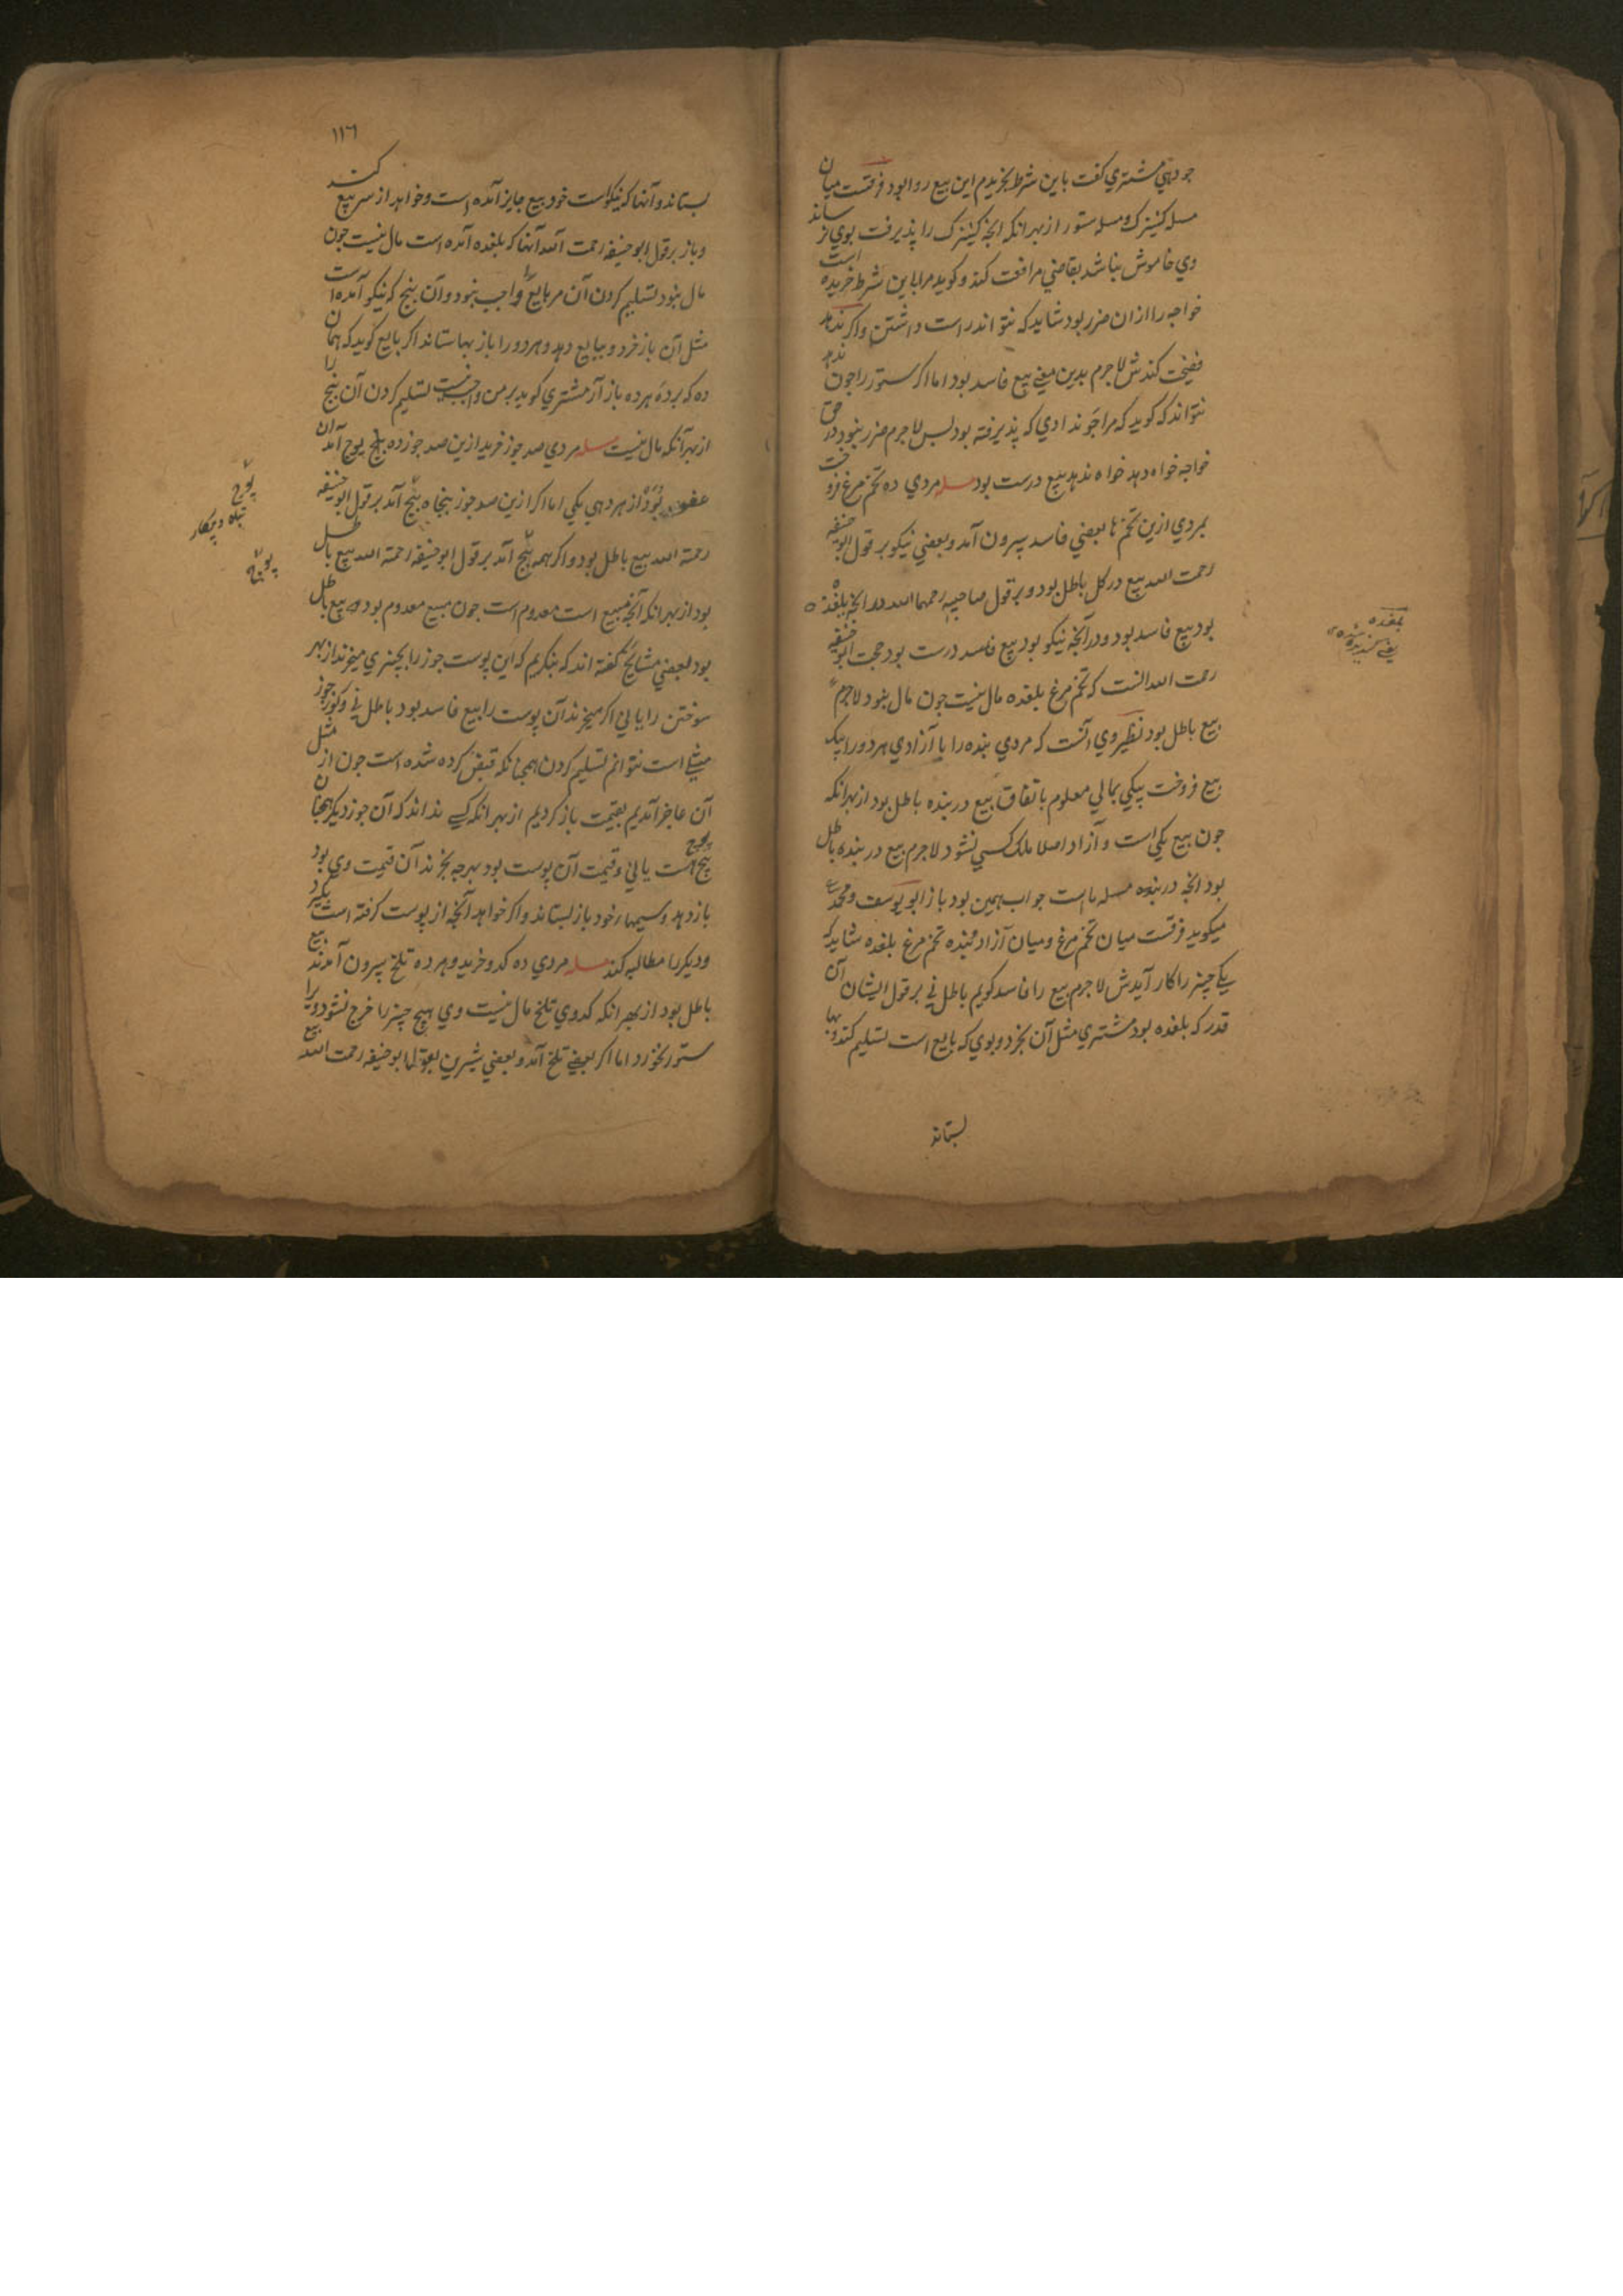 جو دهي مشتري گفت باين شرط بخريدم اين بيع روا بود فرقست ميان
مسله كنيزك و مسله ستور از بهر انكه انچه كنيزك را پذيرفت بوي نرساند
وي خاموش نباشد بقاضي مرافعت كند و كويد مرا باين شرط خريده است
خواجه را ازان ضرر بود شايد كه نتواند راست داشتن واكر ندهد
فضيحت كندش لاجرم بدين معني بيع فاسد بود اما اكر ستور را جون ندهد
نتواند كه كويد كه مرا جو ندادي كه پذيرفته بود لاجرم ضرر نبود در حق
خواجه خواه دهد خواه ندهد بيع درست بود مسله مردي ده تخم مرغ فروخت
بمردي ازين تخم ها بعضي فاسد بيرون آمد و بعضي نيكو بر قول ابو حنيفه
رحمت الله بيع در كل باطل بود و بر قول صاحبيه رحمهما الله در انچه بلغده
بود بيع فاسد بود و در آنچه نيكو بود بيع فاسد درست بود حجت ابو حنيفه
رحمت الله انست كه تخم مرغ بلغده مال نيست جون مال نبود لاجرم
بيع باطل بود نظير وي آنست كه مردي بنده را با آزادي هر دو را بيك
بيع فروخت بيكي بمالي معلوم باتفاق بيع در بنده باطل بود از بهر انكه
جون بيع يكي است و آزاد اصلا ملك كسي نشود لاجرم بيع در بنده باطل
بود انچه در بنده مسله ماست جواب همين بود باز ابو يوسف و محمد
ميكويد فرقست ميان تخم مرغ و ميان آزاد تخم مرغ بلغده شايد كه
يكي چيز را كار آيدش لاجرم بيع را فاسد كويم باطل ني بر قول ايشان آن
قدر كه بلغده بود مشتري مثل آن بخرد و بوي كه بايع است تسليم كند و بها
بستاند
بلغده
يعني كنديده شده
١١٦
بستاند و آنها كه نيكوست خود بيع جايز آمده است و خواهد از سر بيع كند
و باز بر قول ابو حنيفه رحمت الله آنها كه بلغده آمده است مال نيست جون
مال نبود تسليم كردن آن مر بايع را واجب نبود و آن پنج كه نيكو آمده است
مثل آن باز خرد و ببايع دهد و هر دو را باز بها ستاند اكر بايع كويد كه همان
ده كه برده هر ده باز آر مشتري كويد بر من واجب نيست تسليم كردن آن پنج را
از بهر آنكه مال نيست مسله مردي صد جوز خريد ازين صد جوز ده پوچ آمد آن
عفو بود از هر دهي يكي اما اكر ازين صد جوز پنجاه پوچ آمد بر قول ابو حنيفه
رحمة الله بيع باطل بود و اكر همه پوچ آمد بر قول ابو حنيفه رحمة الله بيع باطل
بود از بهر انكه آنچه مبيع است معدوم است جون مبيع معدوم بود بيع باطل
بود بعضي مشايخ كفته اند كه بنكريم كه اين پوست جوز را بچيزي ميخرند از بهر
سوختن را يا ني اكر ميخرند آن پوست را بيع فاسد بود باطل ني جوز
مثلي است نتوانم تسليم كردن همچنانكه قبض كرده شده است جون از مثل
آن عاجز آمديم بقيمت باز كرديم از بهر انكه كسي نداند كه آن جوز ديكر همچنان
پوچ هست يا ني و قيمت آن پوست بود بهر چه بخرند آن قيمت وي بود
باز دهد و سيمهاء خود باز بستاند و اكر خواهد آنچه از پوست كرفته است بكيرد
و ديكر را مطالبه كند مسله مردي ده كدو خريد و هر ده تلخ بيرون آمدند بيع
باطل بود از بهر انكه كدوي تلخ مال نيست وي هيچ چيز را خرج نشود ويرا
ستور نخورد اما اكر بعضي تلخ آمد و بعضي شيرين بقول ابو حنيفه رحمت الله بيع
پوچ
تباه و بيكار